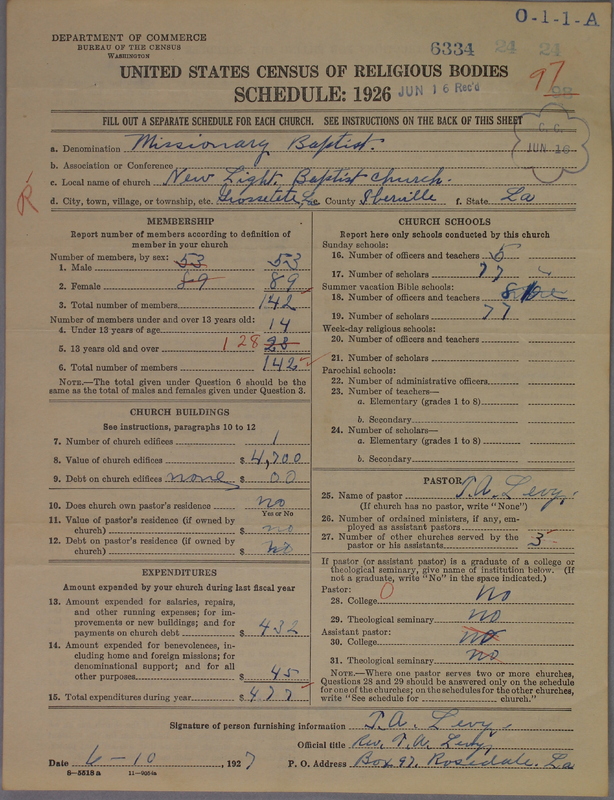 O-1-1-A
DEPARTMENT OF COMMERCE
BUREAU OF THE CENSUS
WASHINGTON
6334 24 24
UNITED STATES CENSUS OF RELIGIOUS BODIES
97
SCHEDULE: 1926
JUN 16 Rec'd
FILL OUT A SEPARATE SCHEDULE FOR EACH CHURCH. SEE INSTRUCTIONS ON THE BACK OF THIS SHEET
C. C.
JUN 16
a. Denomination Missionary Baptist.
b. Association or Conference
c. Local name of church New Light Baptist church.
d. City, town, village, or township, etc. Grossetete, La County Iberville f. State La
R
MEMBERSHIP
Report number of members according to definition of member in your church
Number of members, by sex:
1. Male 53 53
2. Female 89 89
3. Total number of members 142
Number of members under and over 13 years old:
4. Under 13 years of age 14
5. 13 years old and over 128 28
6. Total number of members 142
NOTE.—The total given under Question 6 should be the same as the total of males and females given under Question 3.
CHURCH BUILDINGS
See instructions, paragraphs 10 to 12
7. Number of church edifices 1
8. Value of church edifices $ 4,700
9. Debt on church edifices none $ 00
10. Does church own pastor's residence no
Yes or No
11. Value of pastor's residence (if owned by church) $ no
12. Debt on pastor's residence (if owned by church) $ no
EXPENDITURES
Amount expended by your church during last fiscal year
13. Amount expended for salaries, repairs, and other running expenses; for improvements or new buildings; and for payments on church debt $ 432
14. Amount expended for benevolences, including home and foreign missions; for denominational support; and for all other purposes $ 45
15. Total expenditures during year $ 477
CHURCH SCHOOLS
Report here only schools conducted by this church
Sunday schools:
16. Number of officers and teachers 5
17. Number of scholars 77
Summer vacation Bible schools:
18. Number of officers and teachers
19. Number of scholars 77
Week-day religious schools:
20. Number of officers and teachers
21. Number of scholars
Parochial schools:
22. Number of administrative officers
23. Number of teachers—
a. Elementary (grades 1 to 8)
b. Secondary
24. Number of scholars—
a. Elementary (grades 1 to 8)
b. Secondary
PASTOR
25. Name of pastor T. A. Levy.
(If church has no pastor, write "None")
26. Number of ordained ministers, if any, employed as assistant pastors
27. Number of other churches served by the pastor or his assistants 3
If pastor (or assistant pastor) is a graduate of a college or theological seminary, give name of institution below. (If not a graduate, write "No" in the space indicated.)
Pastor:
28. College 0 No
29. Theological seminary no
Assistant pastor:
30. College no
31. Theological seminary no
NOTE.—Where one pastor serves two or more churches, Questions 28 and 29 should be answered only on the schedule for one of the churches; on the schedules for the other churches, write "See schedule for church."
Signature of person furnishing information T. A. Levy.
Official title Rev. T. A. Levy,
Date 6-10, 1927 P. O. Address Box 97, Rosedale. La
8—5518 a 11—9054a